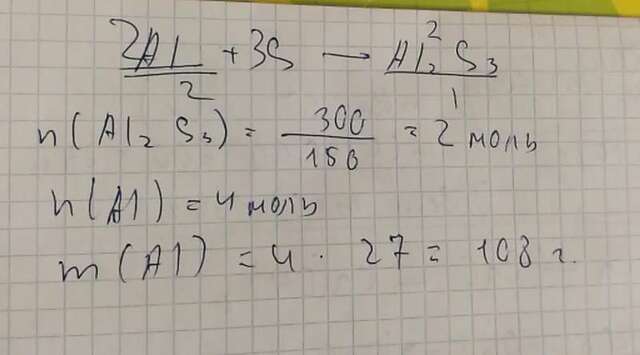 2
2Al + 3S → Al₂S₃
2 1
n(Al₂S₃) = 300/150 = 2 моль
n(Al) = 4 моль
m(Al) = 4 · 27 = 108 г.